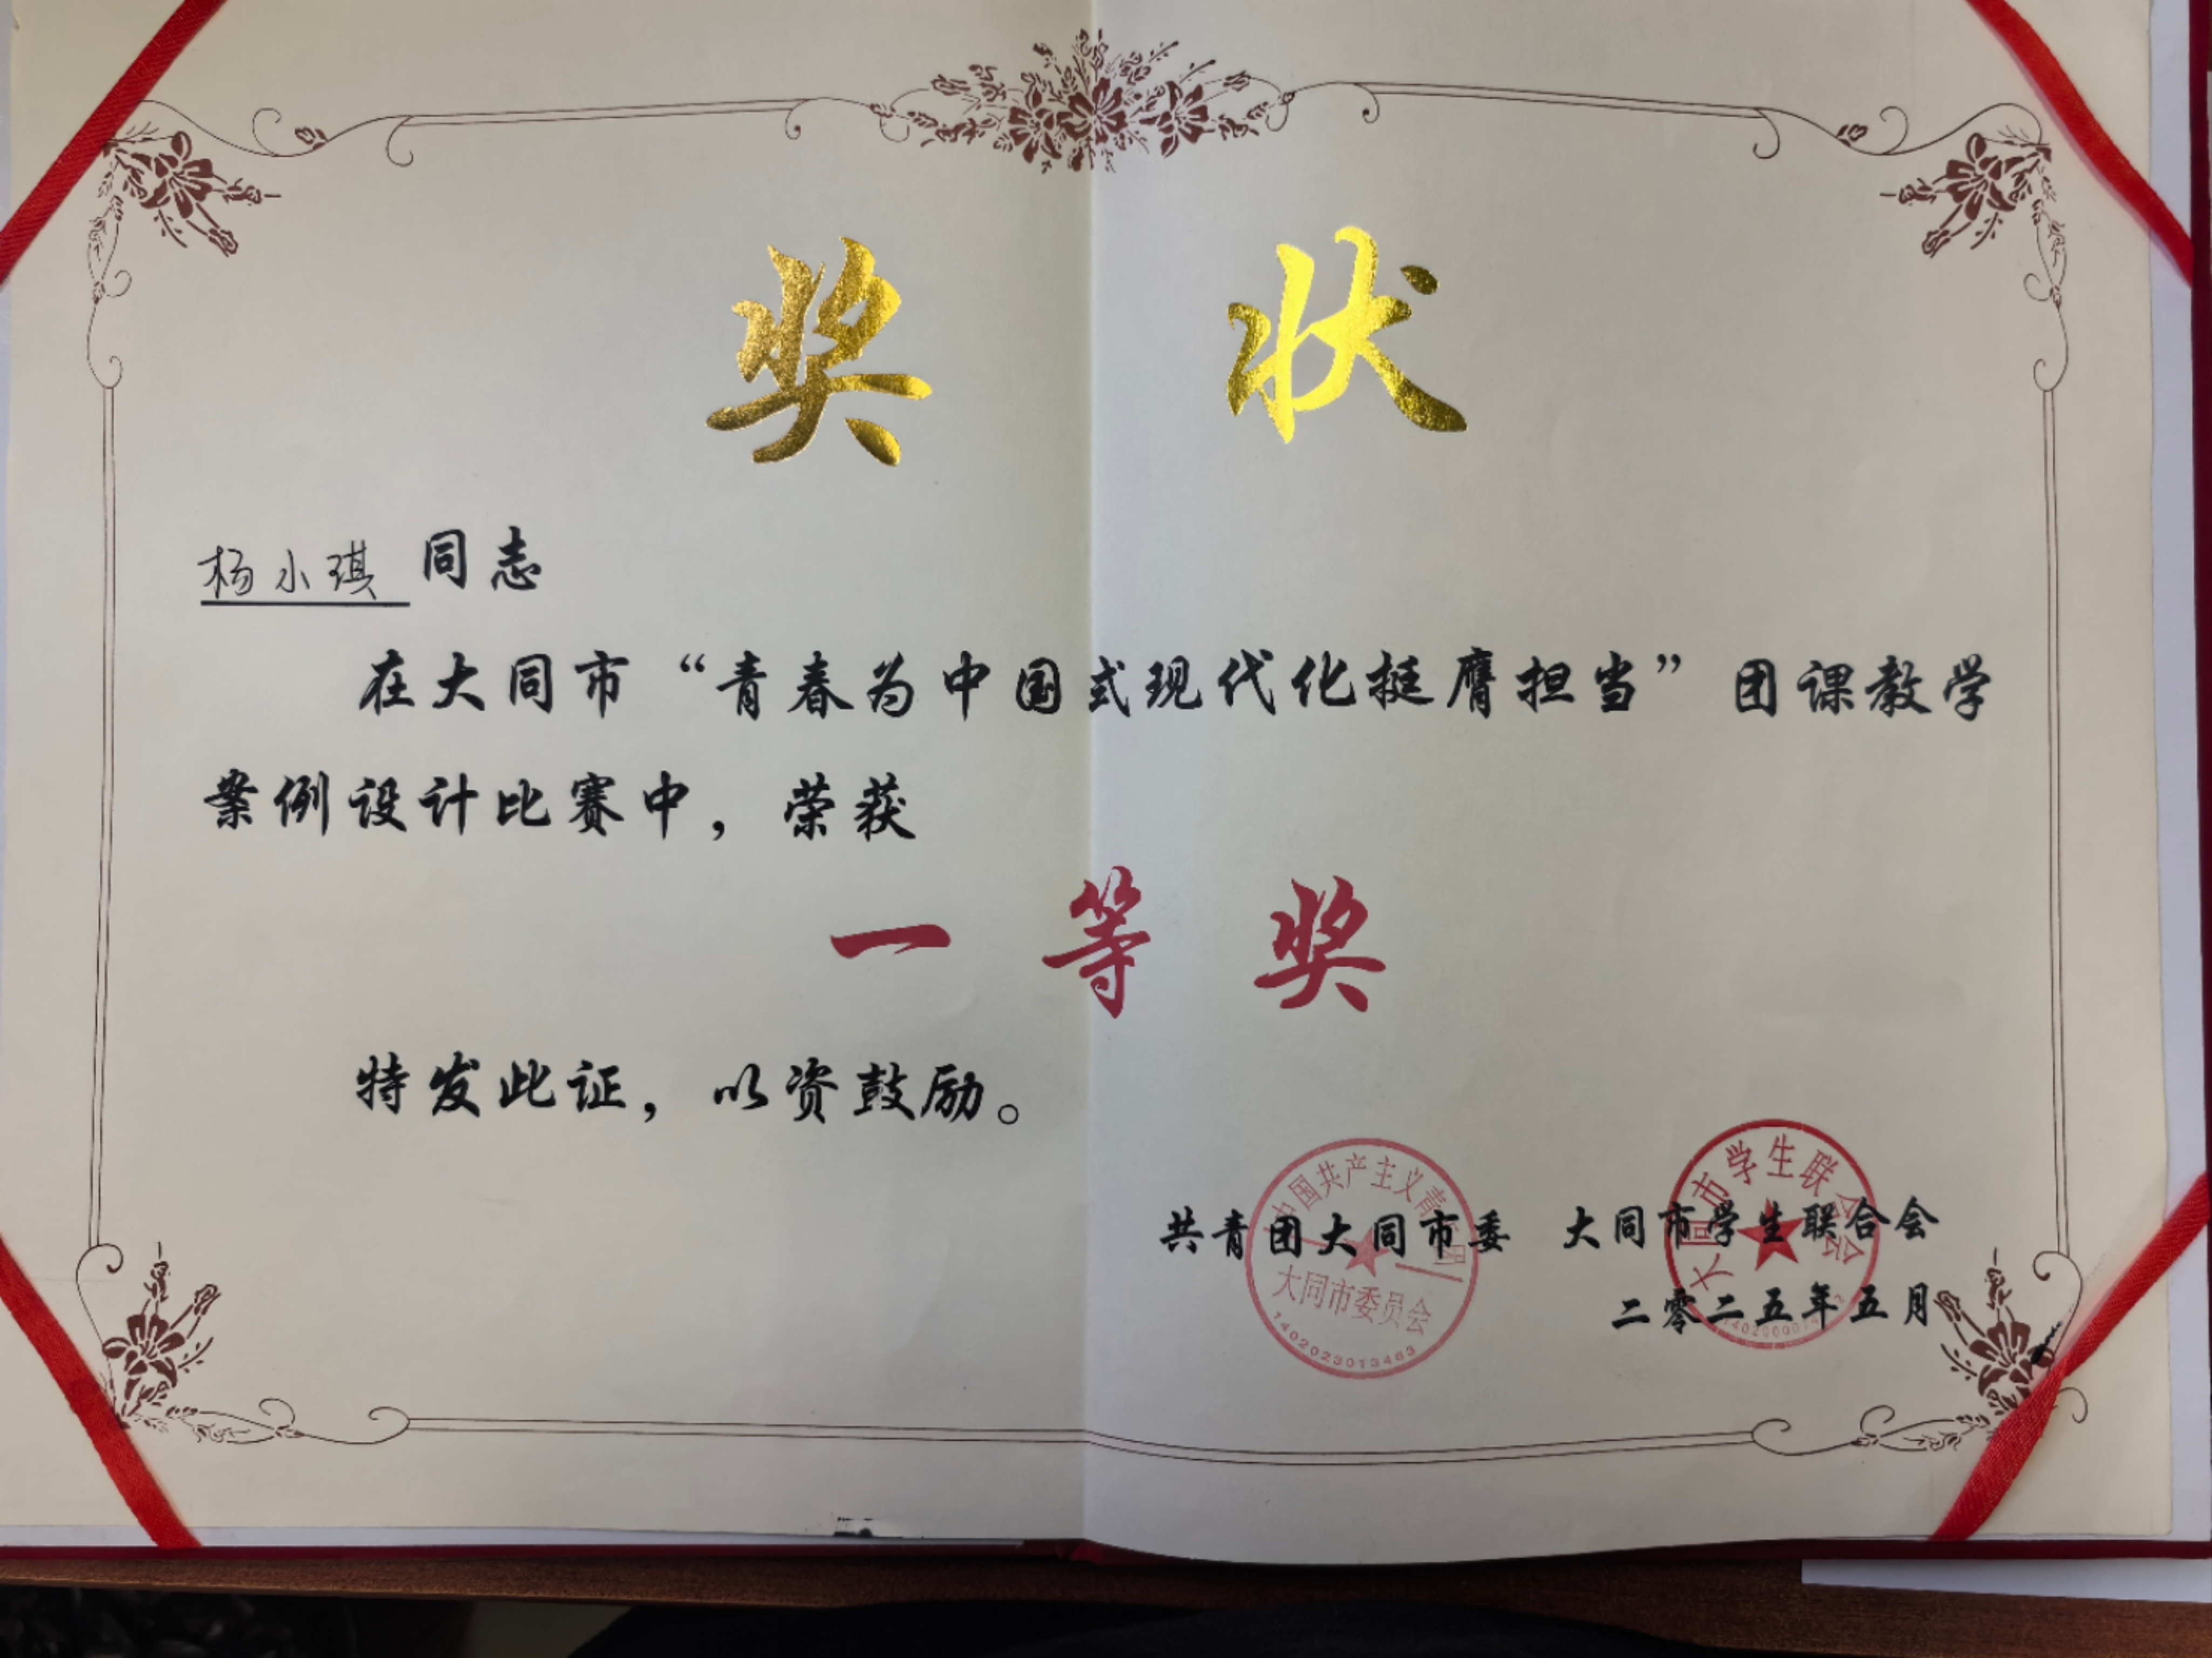 奖 状
杨小琪 同志
在大同市“青春为中国式现代化挺膺担当”团课教学
案例设计比赛中，荣获
一等奖
特发此证，以资鼓励。
共青团大同市委 大同市学生联合会
二零二五年五月
中国共产主义青年团
大同市委员会
1402023013463
大同市学生联合会